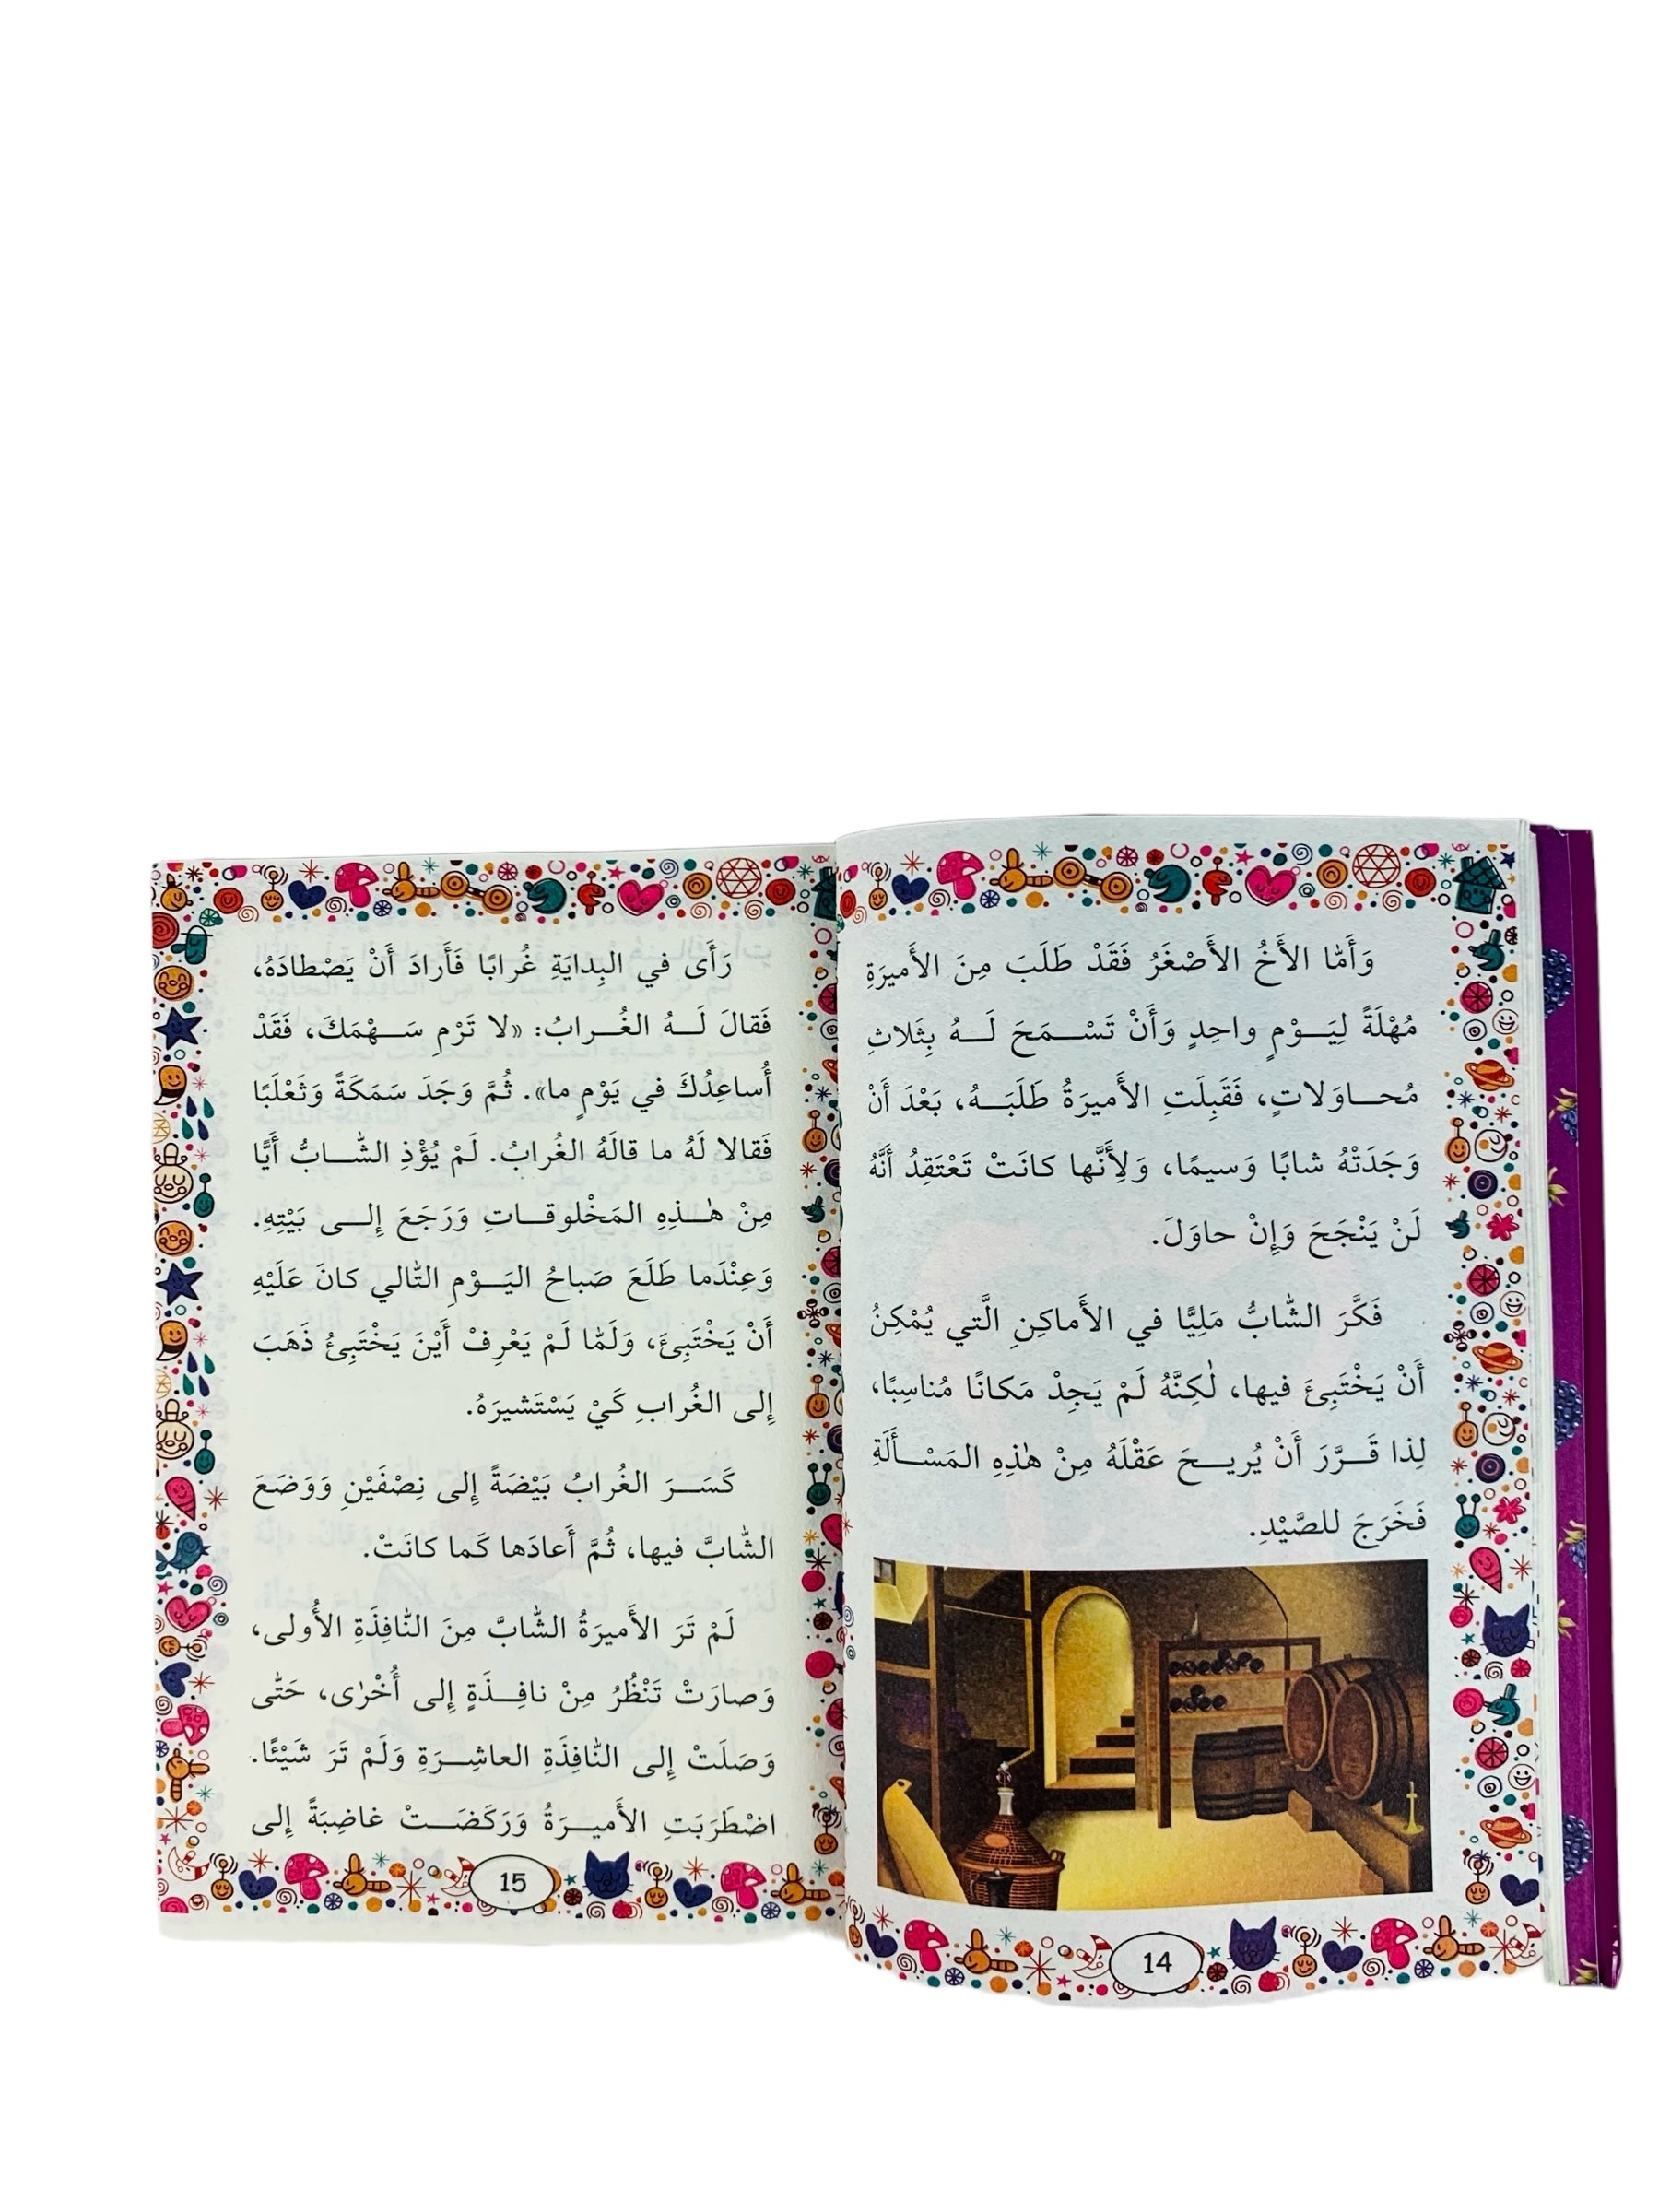 وَأَمّا الأَخُ الأَصْغَرُ فَقَدْ طَلَبَ مِنَ الأَميرَةِ
مُهْلَةً لِيَوْمٍ واحِدٍ وَأَنْ تَسْمَحَ لَهُ بِثَلاثِ
مُحاوَلاتٍ، فَقَبِلَتِ الأَميرَةُ طَلَبَهُ، بَعْدَ أَنْ
وَجَدَتْهُ شابًا وَسيمًا، وَلِأَنَّها كانَتْ تَعْتَقِدُ أَنَّهُ
لَنْ يَنْجَحَ وَإِنْ حاوَلَ.
فَكَّرَ الشّابُّ مَلِيًّا في الأَماكِنِ الَّتي يُمْكِنُ
أَنْ يَخْتَبِئَ فيها، لٰكِنَّهُ لَمْ يَجِدْ مَكانًا مُناسِبًا،
لِذا قَرَّرَ أَنْ يُريحَ عَقْلَهُ مِنْ هٰذِهِ المَسْأَلَةِ
فَخَرَجَ للصَّيْدِ.
14
رَأَى في البِدايَةِ غُرابًا فَأَرادَ أَنْ يَصْطادَهُ،
فَقالَ لَهُ الغُرابُ: «لا تَرْمِ سَهْمَكَ، فَقَدْ
أُساعِدُكَ في يَوْمٍ ما». ثُمَّ وَجَدَ سَمَكَةً وَثَعْلَبًا
فَقالا لَهُ ما قالَهُ الغُرابُ. لَمْ يُؤْذِ الشّابُّ أَيًّا
مِنْ هٰذِهِ المَخْلوقاتِ وَرَجَعَ إِلى بَيْتِهِ.
وَعِنْدَما طَلَعَ صَباحُ اليَوْمِ التّالي كانَ عَلَيْهِ
أَنْ يَخْتَبِئَ، وَلَمّا لَمْ يَعْرِفْ أَيْنَ يَخْتَبِئُ ذَهَبَ
إِلى الغُرابِ كَيْ يَسْتَشيرَهُ.
كَسَرَ الغُرابُ بَيْضَةً إِلى نِصْفَيْنِ وَوَضَعَ
الشّابَّ فيها، ثُمَّ أَعادَها كَما كانَتْ.
لَمْ تَرَ الأَميرَةُ الشّابَّ مِنَ النّافِذَةِ الأُولى،
وَصارَتْ تَنْظُرُ مِنْ نافِذَةٍ إِلى أُخْرٰى، حَتّى
وَصَلَتْ إِلى النّافِذَةِ العاشِرَةِ وَلَمْ تَرَ شَيْئًا.
اضْطَرَبَتِ الأَميرَةُ وَرَكَضَتْ غاضِبَةً إِلى
15